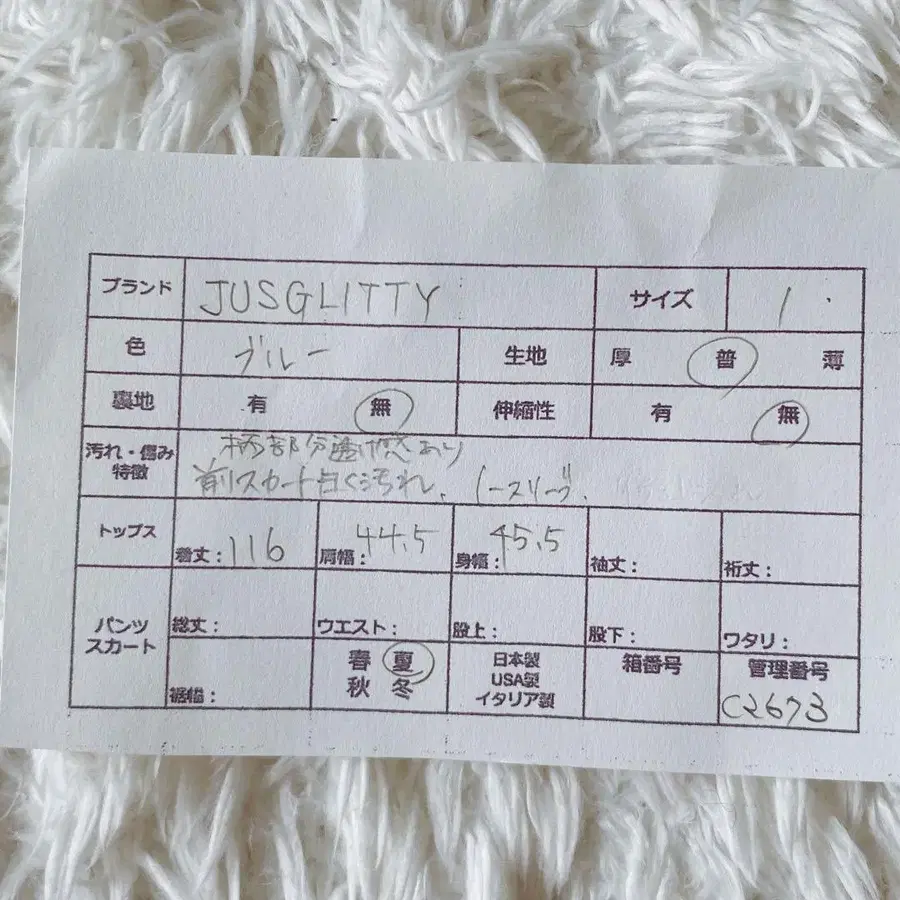 ブランド JUSGLITTY サイズ 1
色 ブルー 生地 厚 普 薄
裏地 有 無 伸縮性 有 無
汚れ・傷み 柄部分透け感あり
特徴 前スカート白く汚れ、ノースリーブ、
トップス 着丈：116 肩幅：44.5 身幅：45.5 袖丈： 裄丈：
パンツ スカート 総丈： ウエスト： 股上： 股下： ワタリ：
裾幅： 春 夏 秋 冬 日本製 USA製 イタリア製 箱番号 管理番号
C2673